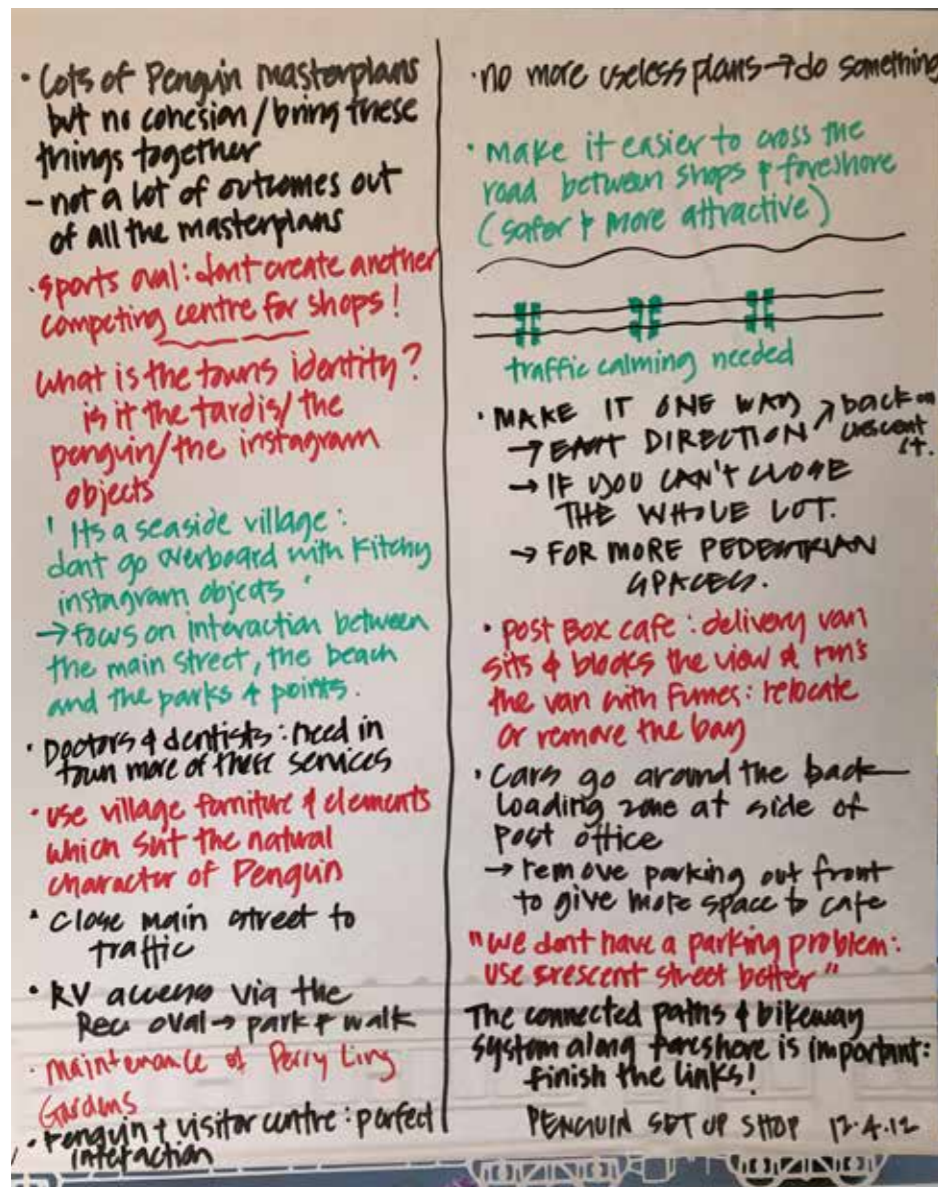 • Lots of Penguin masterplans
but no cohesion / bring these
things together
- not a lot of outcomes out
of all the masterplans
• sports oval: dont create another
competing centre for shops!
what is the towns identity?
is it the tardis/ the
penguin/ the instagram
objects
' Its a seaside village:
dont go overboard with Kitchy
instagram objects '
→ focus on interaction between
the main street, the beach
and the parks & points.
• Doctors & dentists: need in
town more of these services
• use village furniture & elements
which suit the natural
character of Penguin
• Close main street to
traffic
• RV access via the
Rec. oval → park & walk
• maintenance of Perry Ling
Gardens
• Penguin + visitor centre: perfect
interaction
• no more useless plans → do something
• make it easier to cross the
road between shops & foreshore
(safer & more attractive)
traffic calming needed
• MAKE IT ONE WAY ↗ back on
→ EAST DIRECTION crescent
st.
→ IF YOU CAN'T CLOSE
THE WHOLE LOT.
→ FOR MORE PEDESTRIAN
SPACES.
• Post Box cafe: delivery van
sits & blocks the view & run's
the van with fumes: relocate
or remove the bay
• Cars go around the back
Loading zone at side of
post office
→ remove parking out front
to give more space to cafe
"we dont have a parking problem:
use crescent street better"
The connected paths & bikeway
system along foreshore is important:
finish the links!
PENGUIN SET UP SHOP 12.4.12